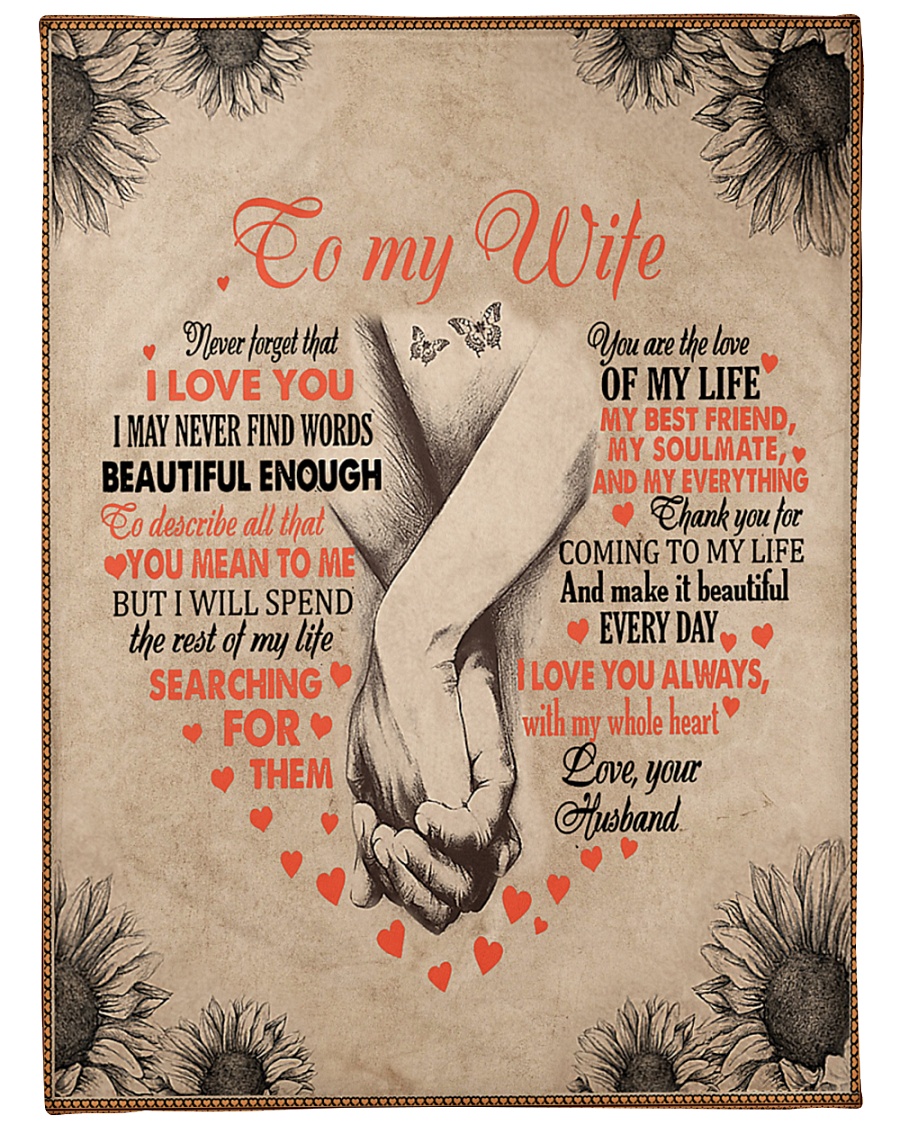 To my Wife
Never forget that
I LOVE YOU
I MAY NEVER FIND WORDS
BEAUTIFUL ENOUGH
To describe all that
YOU MEAN TO ME
BUT I WILL SPEND
the rest of my life
SEARCHING
FOR
THEM
You are the love
OF MY LIFE
MY BEST FRIEND,
MY SOULMATE,
AND MY EVERYTHING
Thank you for
COMING TO MY LIFE
And make it beautiful
EVERY DAY
I LOVE YOU ALWAYS,
with my whole heart
Love, your
Husband